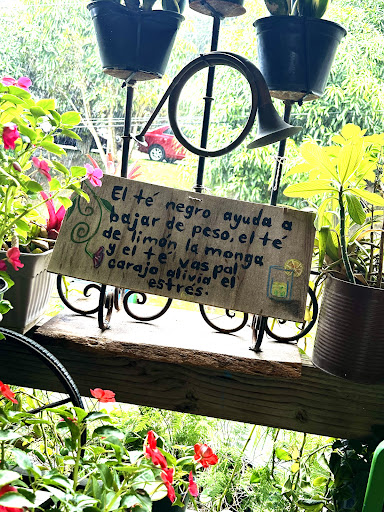 El té negro ayuda a
bajar de peso, el té
de limón la monga
y el té, vas pal
carajo alivia el
estrés.